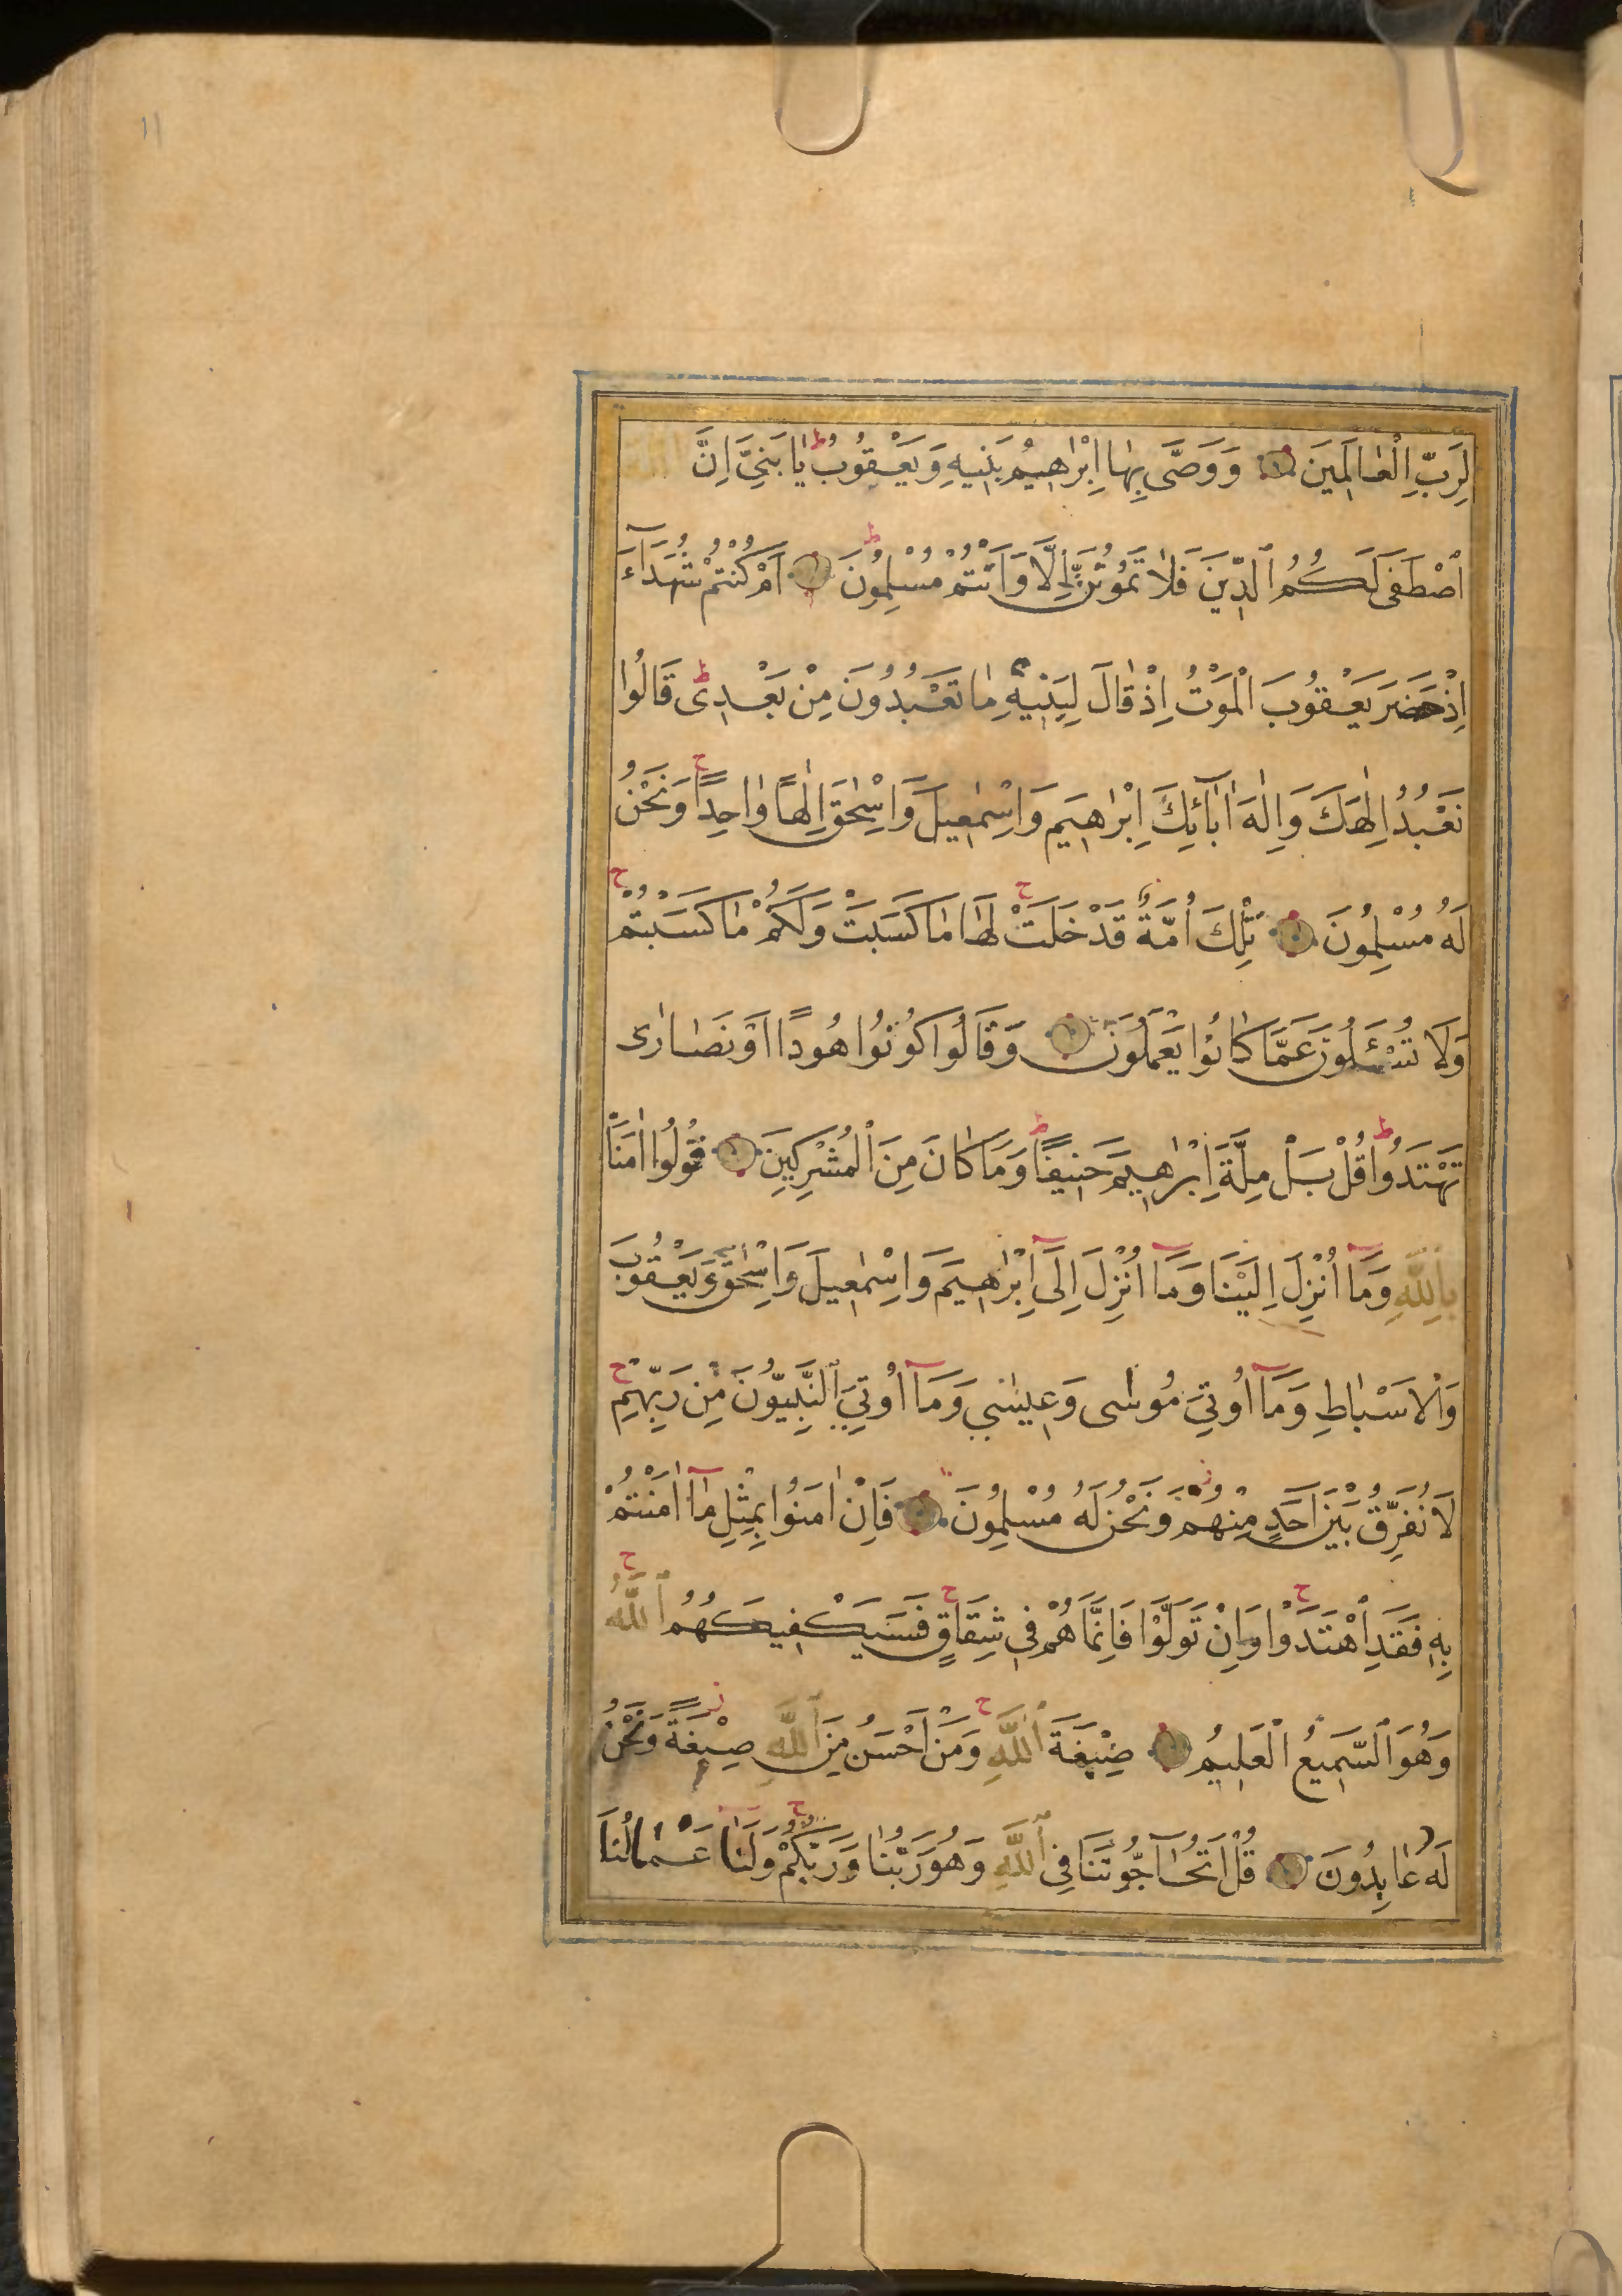 لِرَبِّ الْعَالَمِينَ وَوَصَّى بِهَا اِبْرَاهِيمُ بَنِيهِ وَيَعْقُوبُ ط يَا بَنِيَّ اِنَّ
ٱصْطَفَى لَكُمُ ٱلدِّينَ فَلَا تَمُوتُنَّ اِلَّا وَاَنْتُمْ مُسْلِمُونَ ط اَمْ كُنْتُمْ شُهَدَآءَ
اِذْ حَضَرَ يَعْقُوبَ الْمَوْتُ اِذْ قَالَ لِبَنِيهِ مَا تَعْبُدُونَ مِنْ بَعْدِى ط قَالُوا
نَعْبُدُ اِلٰهَكَ وَاِلٰهَ اٰبَآئِكَ اِبْرٰهِيمَ وَاِسْمٰعِيلَ وَاِسْحٰقَ اِلٰهًا وَاحِدًا ح وَنَحْنُ
لَهُ مُسْلِمُونَ تِلْكَ اُمَّةٌ قَدْ خَلَتْ ح لَهَا مَا كَسَبَتْ وَلَكُمْ مَا كَسَبْتُمْ ح
وَلَا تُسْئَلُونَ عَمَّا كَانُوا يَعْمَلُونَ وَقَالُوا كُونُوا هُودًا اَوْ نَصَارٰى
تَهْتَدُوا ط قُلْ بَلْ مِلَّةَ اِبْرٰهِيمَ حَنِيفًا ط وَمَا كَانَ مِنَ ٱلْمُشْرِكِينَ قُولُوا اٰمَنَّا
بِاللّٰهِ وَمَآ اُنْزِلَ اِلَيْنَا وَمَآ اُنْزِلَ اِلَىٓ اِبْرٰهِيمَ وَاِسْمٰعِيلَ وَاِسْحٰقَ وَيَعْقُوبَ
وَالْاَسْبَاطِ وَمَآ اُوتِيَ مُوسٰى وَعِيسٰى وَمَآ اُوتِيَ ٱلنَّبِيُّونَ مِنْ رَبِّهِمْ ح
لَا نُفَرِّقُ بَيْنَ اَحَدٍ مِنْهُمْ ز وَنَحْنُ لَهُ مُسْلِمُونَ فَاِنْ اٰمَنُوا بِمِثْلِ مَآ اٰمَنْتُمْ
بِهِ فَقَدِ ٱهْتَدَوْا ح وَاِنْ تَوَلَّوْا فَاِنَّمَا هُمْ فِى شِقَاقٍ ح فَسَيَكْفِيكَهُمُ ٱللّٰهُ ح
وَهُوَ ٱلسَّمِيعُ ٱلْعَلِيمُ صِبْغَةَ ٱللّٰهِ ح وَمَنْ اَحْسَنُ مِنَ ٱللّٰهِ صِبْغَةً ز وَنَحْنُ
لَهُ عَابِدُونَ قُلْ اَتُحَآجُّونَنَا فِى ٱللّٰهِ وَهُوَ رَبُّنَا وَرَبُّكُمْ ح وَلَنَا عْمَالُنَا